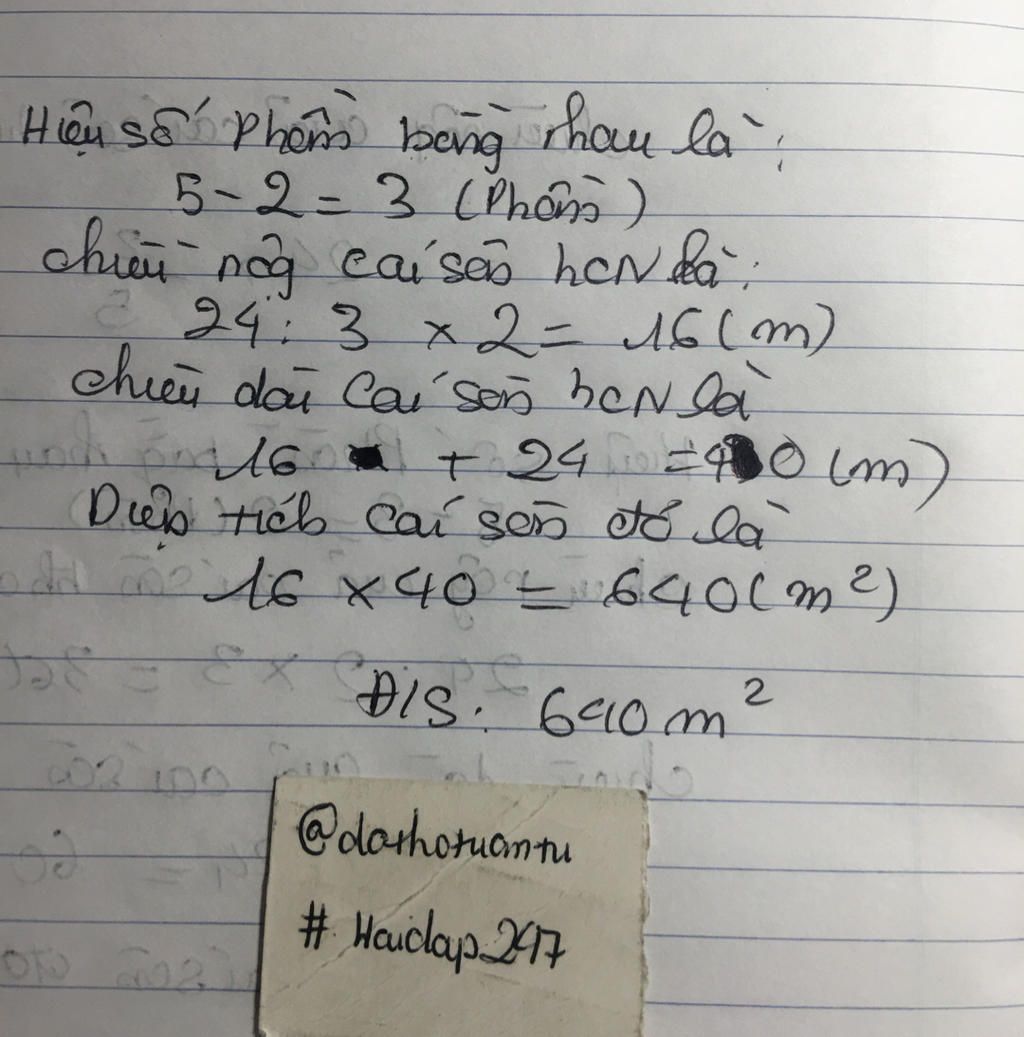 Hiệu số phần bằng nhau là:
5 - 2 = 3 (Phần)
chiều rộng cái sân hCN là:
24 : 3 x 2 = 16 (m)
chiều dài cái sân hCN là
16 + 24 = 40 (m)
Diện tích cái sân đó là
16 x 40 = 640 (m²)
Đ/S: 640 m²
@dothotuantu
# Hoidap247